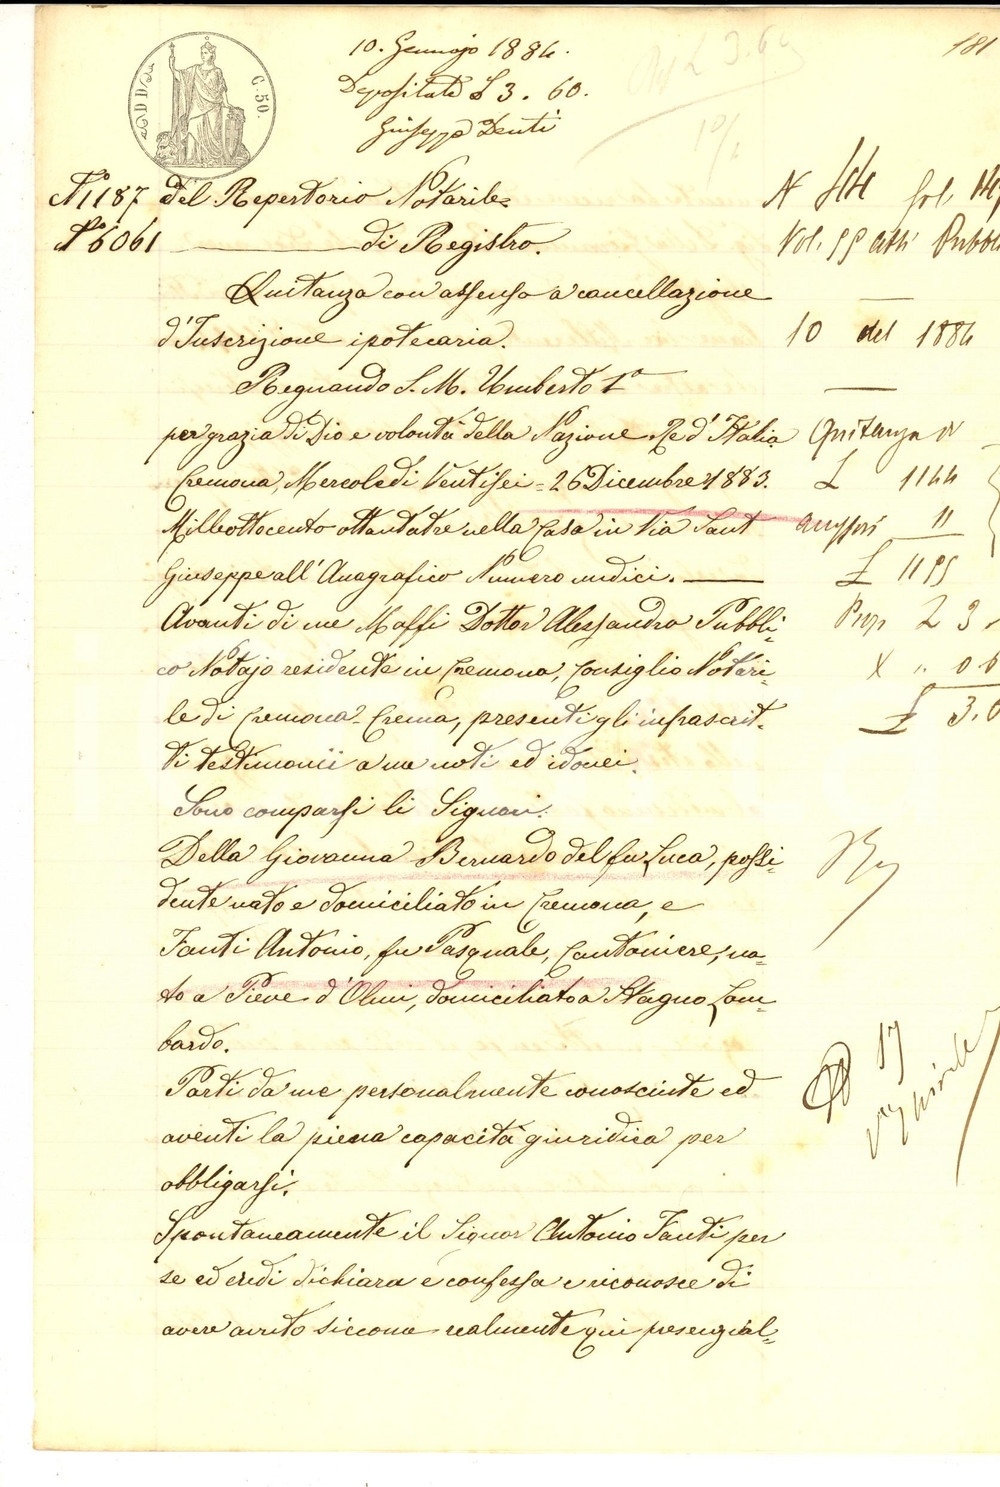 10. Gennajo 1884.
Depositate £ 3. 60.
Giuseppe Denti
181
C. 50.
N° 1187 del Repertorio Notarile
N° 6061 di Registro.
Quitanza con assenso a cancellazione
d'Inscrizione ipotecaria.
Regnando S. M. Umberto 1°
per grazia di Dio e volontà della Nazione Re d'Italia
Cremona, Mercoledi Ventisei = 26 Dicembre 1883.
Milleottocento ottantatre nella Casa in Via Sant
Giuseppe all'Anagrafico Numero undici.
Avanti di me Maffi Dottor Alessandro Pubbli-
co Notajo residente in Cremona, Consiglio Notari-
le di Cremona-Crema, presenti gli infrascrit-
ti testimonii a me noti ed idonei.
Sono comparsi li Signori:
Della Giovanna Bernardo del fu Luca, possi-
dente nato e domiciliato in Cremona, e
Fanti Antonio, fu Pasquale, Cantoniere, na-
to a Pieve d'Olmi, domiciliato a Stagno Lom-
bardo.
Parti da me personalmente conosciute ed
aventi la piena capacità giuridica per
obbligarsi.
Spontaneamente il Signor Antonio Fanti per
se ed eredi dichiara e confessa e riconosce di
avere avuto siccome realmente qui presenzial-
N fol.
Vol. 99 atti Pubbli
10 del 1884
Quitanza
£ 1144
11
£ 1155
£ 3.
£ 3.0
17